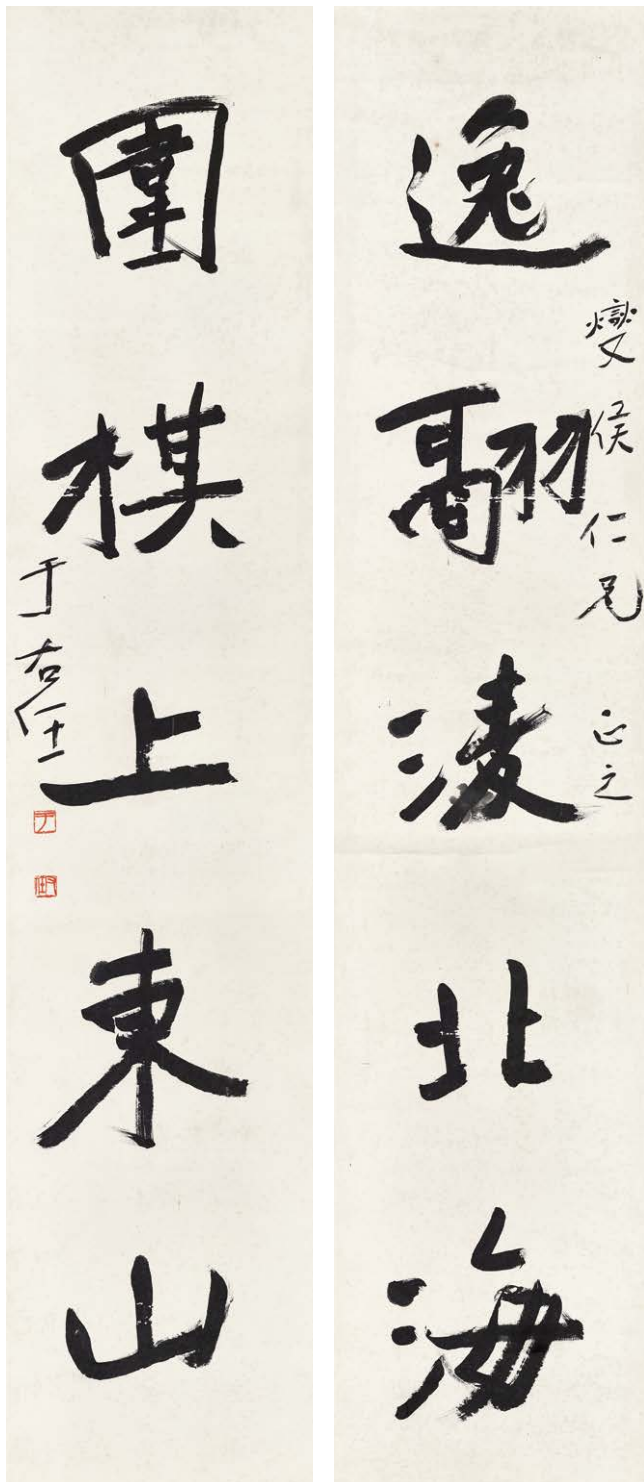 逸翮淩北海
燮侯仁兄 正之
圍棋上東山
于右任